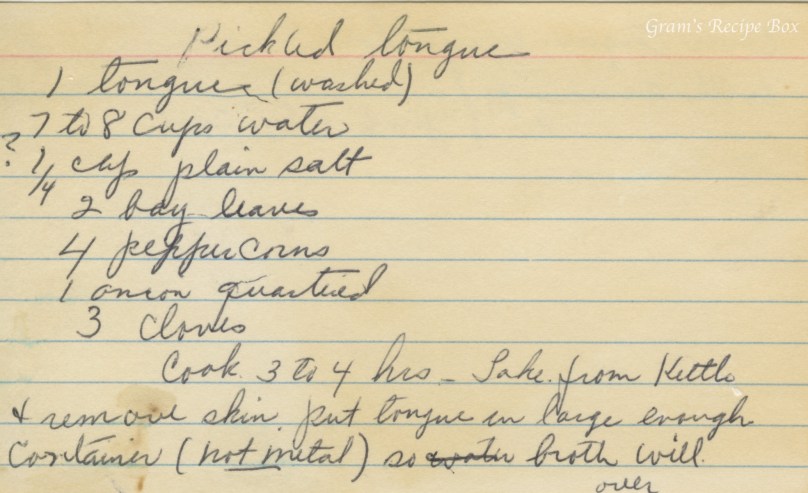 Gram's Recipe Box
Pickled tongue
1 tongue (washed)
7 to 8 cups water
? 1/4 cup plain salt
2 bay leaves
4 peppercorns
1 onion quartied
3 cloves
Cook 3 to 4 hrs - Take from Kettle
& remove skin. put tongue in large enough
Container (not metal) so water broth will
over